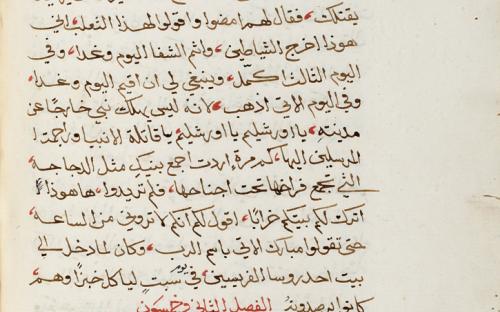 يقتلك، فقال لهم امضوا وقولوا لهذا الثعلب اني
هوذا اخرج الشياطين، واتم الشفا اليوم وغدا، وفي
اليوم الثالث اكمل، وينبغي لي ان اقيم اليوم وغدا،
وفي اليوم الاتي اذهب، لانه ليس يهلك نبي خارجًا عن
مدينته، يا اورشليم يا اورشليم، يا قاتلة الانبيا وراجمة
المرسلين اليها، كم مرة اردت اجمع بنيك مثل الدجاجه
التي تجمع فراخها تحت اجناحها، فلم تريدوا، ها هوذا
اترك لكم بيتكم خرابًا، اقول لكم انكم لا تروني من الساعه
حتى تقولوا مبارك الاتي باسم الرب، وكان لما دخل الى
بيت احد روسا الفريسين، في يوم سبت لياكل خبزًا وهم،
كانوا يرصدونه الفصل الثاني وخمسون